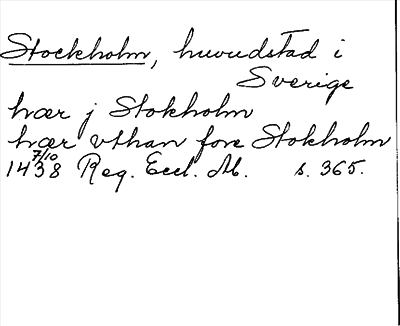 Stockholm, huvudstad i
Sverige
hær j Stokholm
hær vthan fore Stokholm
7/10
1438 Reg. Eccl. Ab. s. 365.